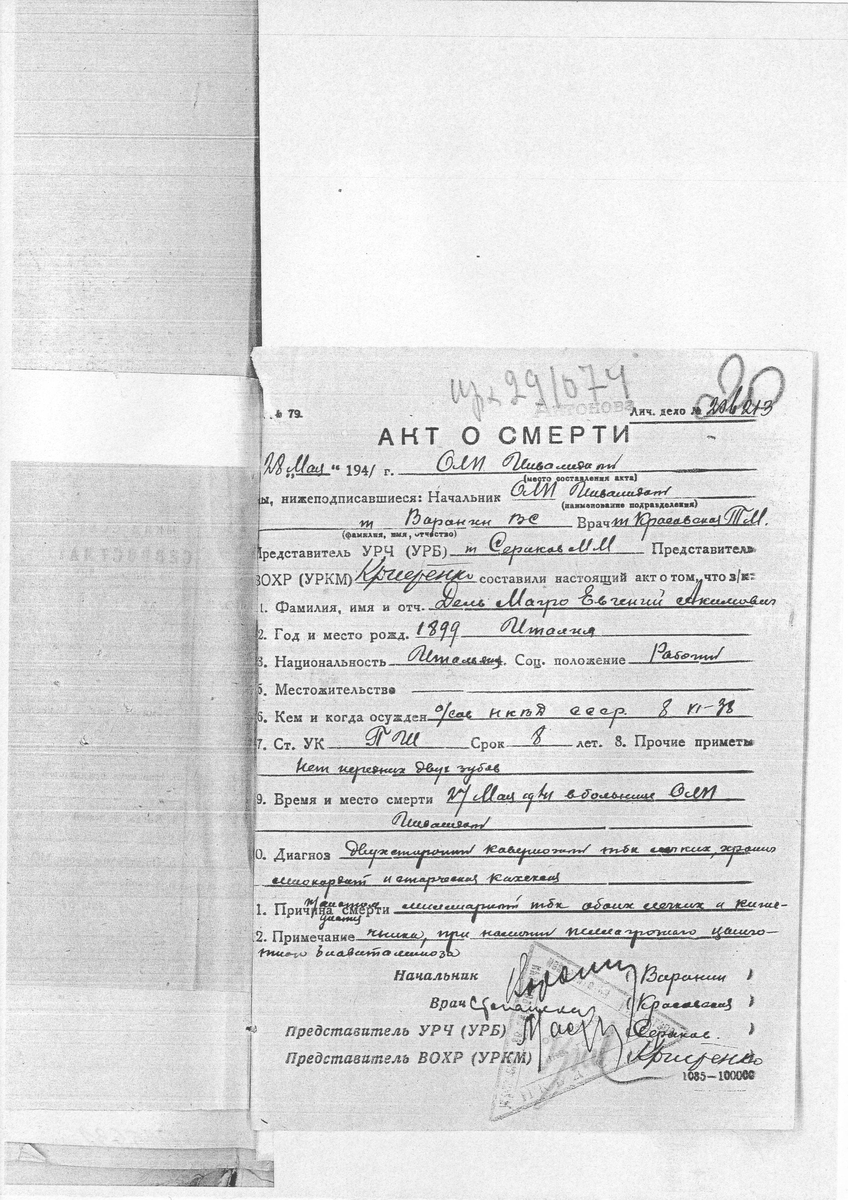 29/074
20
Антонова
№ 79.
Лич. дело №
АКТ О СМЕРТИ
28 „Мая“ 1941 г. ОЛП Инвалидный
(место составления акта)
ы, нижеподписавшиеся: Начальник ОЛП Инвалидный
(наименование подразделения)
т Варанин ВС Врач т Красавская Т.М.
(фамилия, имя, отчество)
Представитель УРЧ (УРБ) т Сериков ММ Представитель
ВОХР (УРКМ) составили настоящий акт о том, что з/к:
1. Фамилия, имя и отч. Дель Магро Евгений Акимович
2. Год и место рожд. 1899 Италия
3. Национальность Итальян. Соц. положение Рабочий
5. Местожительство
6. Кем и когда осужден о/сов НКВД СССР. 8 VI-38
7. Ст. УК ПШ Срок 8 лет. 8. Прочие приметы
Нет передних двух зубов
9. Время и место смерти 27 Мая в больнице ОЛП
Инвалидный
0. Диагноз Двухсторонний кавернозный тбк легких, хронич
миокардит и старческая кахексия
1. Причина смерти милиарный тбк обоих легких и кише-
2. Примечание чника, при наличии пеллагрозного цинго-
тного авитаминоза
Начальник (Варанин)
Врач (Красавская)
Представитель УРЧ (УРБ) (Сериков.)
Представитель ВОХР (УРКМ)
1085—100000